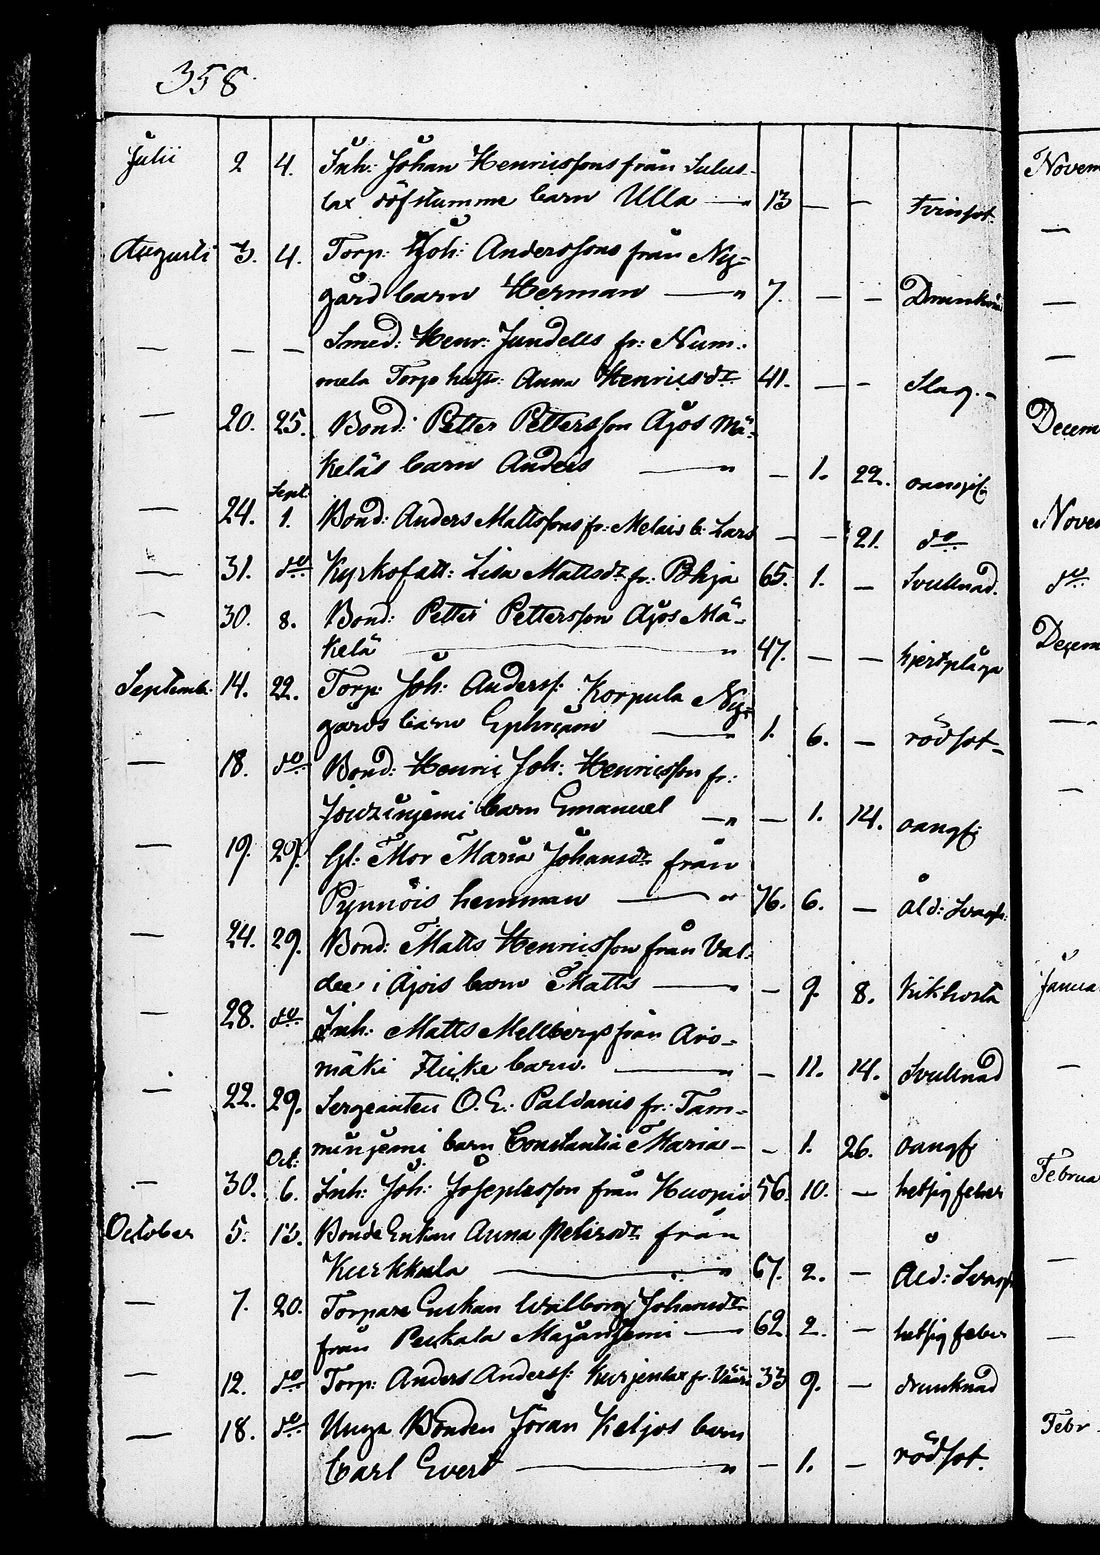 358
Julii 2 4. Inh: Johan Henricssons från Sulus-
lax döfstumme barn Ulla — " 13 — — Tvinsot
Augusti 3. 4. Torp: Joh: Anderssons från Ny-
gård barn Herman — " 7. — — Drunkna
— — — Smed: Henr: Jundells fr: Num-
mela Torp hustr: Anna Henricsdr 41. — — Slag. -
— 20. 25. Bond: Petter Pettersson Ajos Mä-
keläs barn Anders — " — 1. 22. oangif:
— 24. Sept 1. Bond: Anders Mattssons fr: Melais b: Lars — — 21. do
— 31. do Kyrkofatt: Lisa Mattsdr fr: Pohja 65. 1. — Svullnad.
— 30. 8. Bond: Petter Pettersson Ajos Mä-
kelä — " 47. — — hjertplåga
Septemb: 14. 22. Torp: Joh: Anderss: Korpula Ny-
gårds barn Ephraim — " 1. 6. — rödsot -
— 18. do Bond: Henric Joh: Henricsson fr:
barn Emanuel — " — 1. 14. oangf:
— 19. 29. Gl: Mor Maria Johansdr från
Pynnöis hemman — " 76. 6. — Åld: Svagh:
— 24. 29. Bond: Matts Henricsson från Val-
dee i Ajois barn Matts — — 9. 8. Kikhosta
— 28. do Inh: Matts Mellbergs från Aro-
mäki Flicke barn. — " — 11. 14. Svullnad
— 22. 29. Sergeanten O. E. Paldanis fr: Tam-
minjemi barn Constantia Maria — — 1. 26. oangf:
— 30. Oct: 6. Inh: Joh: Josephsson från Kuopio 56. 10. — hetsig feber
October 5. 13. Bonde Enkan Anna Petersdr från
Kurkkula — " 67. 2. — Åld: Svagh
— 7. 20. Torpare Enkan Walborg Johansdr
från Peckala Majaniemi — " 62. 2. — hetsig feber
— 12. do Torp: Anders Anderss: Kurjenlax fr: 33 9. — drunknad
— 18. do Unga Bonden Jöran Keljos barn
Carl Evert — " — 1. — rödsot.
Novem
—
—
—
Decem
Novem
do
Decem
—
—
Janua
—
Februa
—
—
Febr